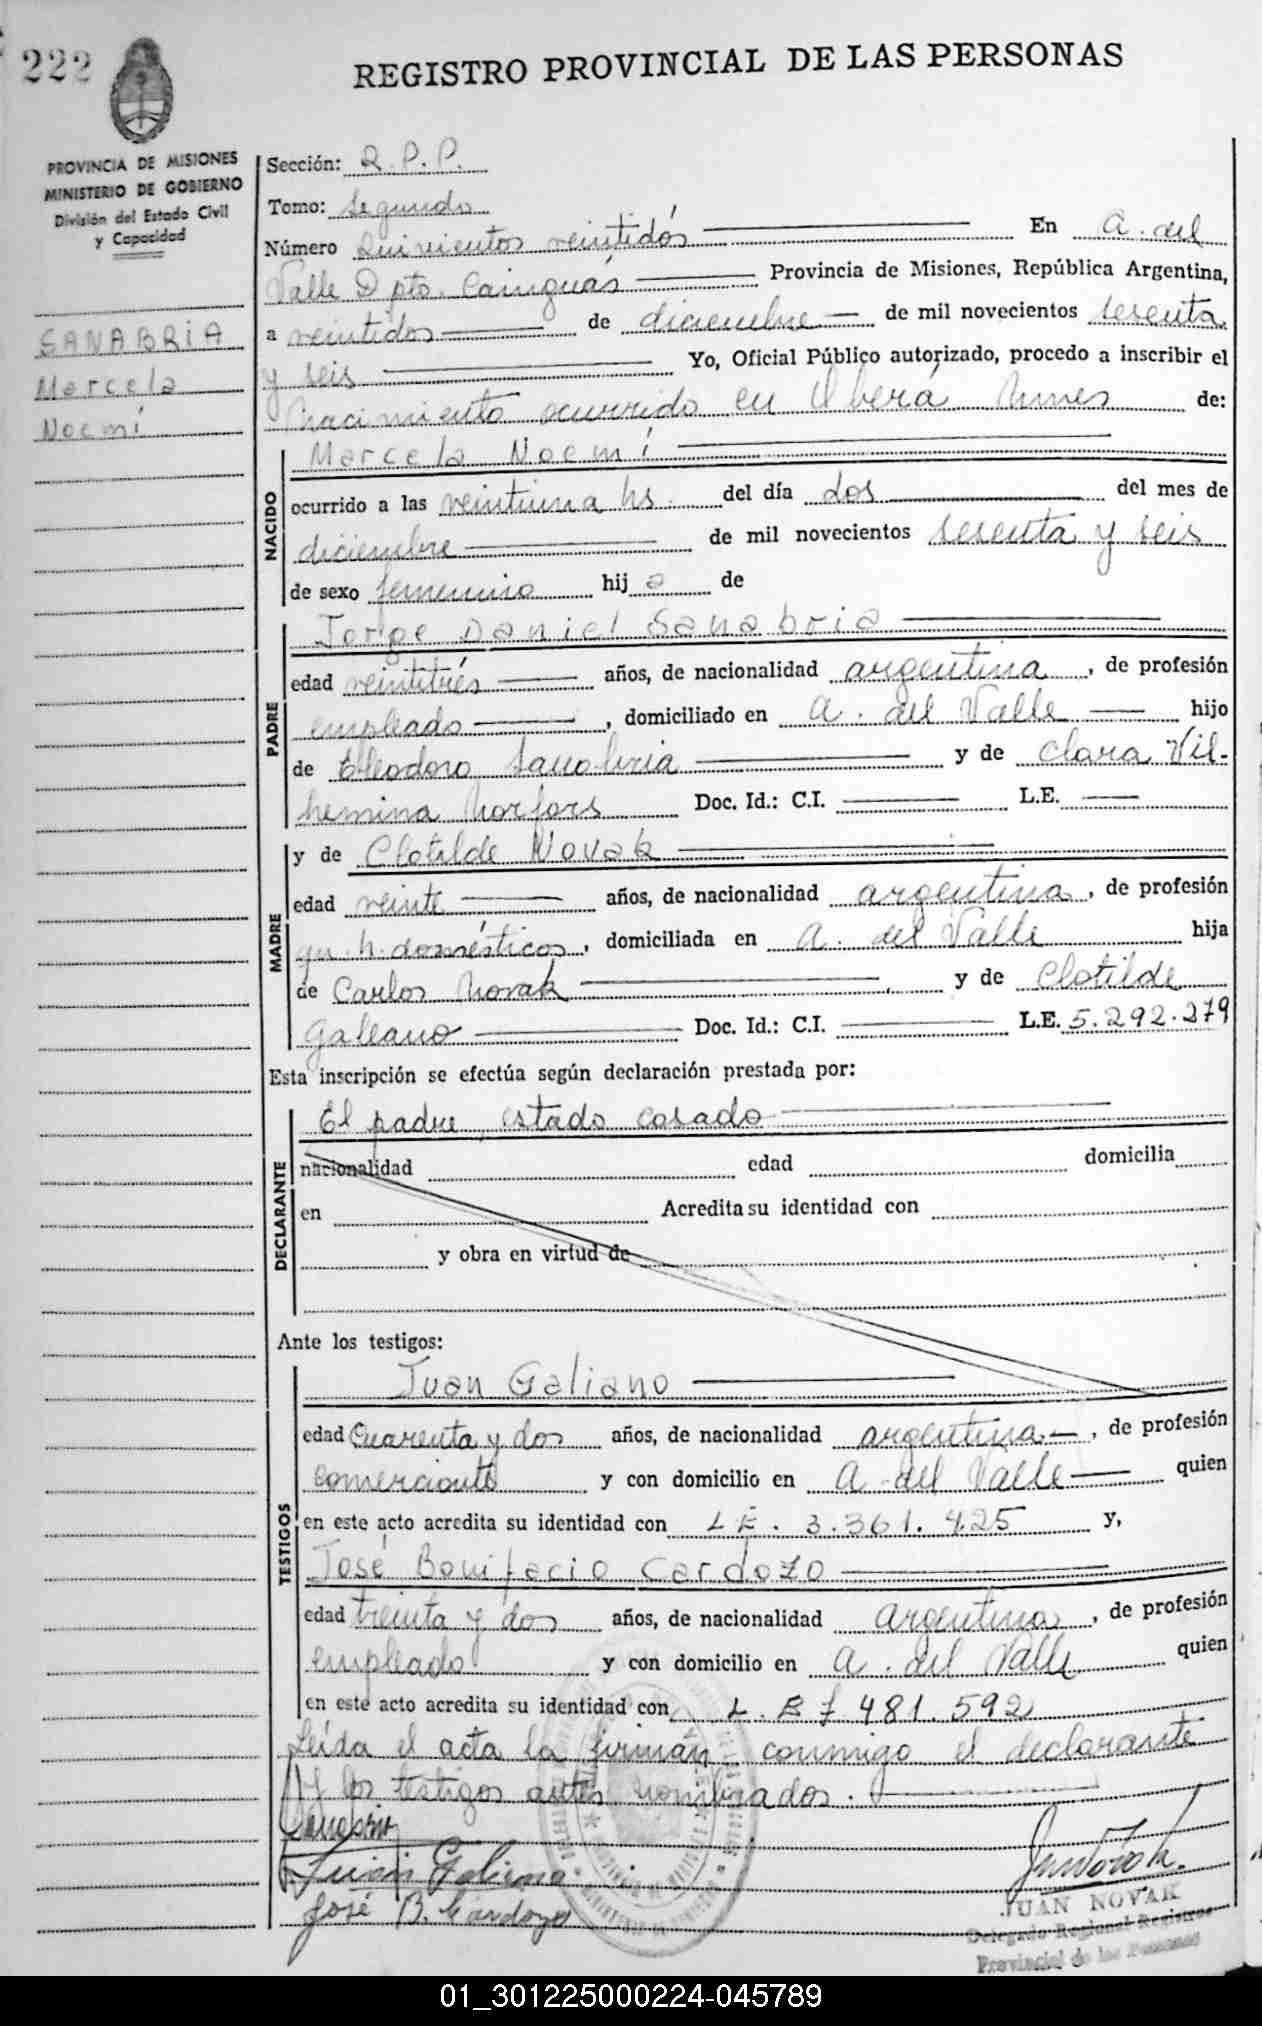 222
REGISTRO PROVINCIAL DE LAS PERSONAS
PROVINCIA DE MISIONES
MINISTERIO DE GOBIERNO
División del Estado Civil
y Capacidad
SANABRIA
Marcela
Noemí
Sección: R.P.P.
Tomo: Segundo
Número Quinientos veintidós En A. del
Valle Dpto. Cainguás Provincia de Misiones, República Argentina,
a veintidos de diciembre de mil novecientos sesenta
y seis Yo, Oficial Público autorizado, procedo a inscribir el
Nacimiento ocurrido en Oberá Mnes de:
NACIDO
Marcela Noemí
ocurrido a las veintiuna hs. del día dos del mes de
diciembre de mil novecientos sesenta y seis
de sexo femenino hija de
PADRE
Jorge Daniel Sanabria
edad veintitrés años, de nacionalidad argentina, de profesión
empleado, domiciliado en A. del Valle hijo
de Eleodoro Sanabria y de Clara Vil-
hemina Norfors Doc. Id.: C.I. L.E.
MADRE
y de Clotilde Novak
edad veinte años, de nacionalidad argentina, de profesión
qu. h. domésticos, domiciliada en A. del Valle hija
de Carlos Novak y de Clotilde
Galeano Doc. Id.: C.I. L.E. 5.292.279
Esta inscripción se efectúa según declaración prestada por:
DECLARANTE
El padre, estado casado
nacionalidad edad domicilia
en Acredita su identidad con
y obra en virtud de
Ante los testigos:
TESTIGOS
Juan Galiano
edad Cuarenta y dos años, de nacionalidad argentina, de profesión
comerciante y con domicilio en A. del Valle quien
en este acto acredita su identidad con L.E. 3.361.425 y,
José Bonifacio Cardozo
edad treinta y dos años, de nacionalidad argentina, de profesión
empleado y con domicilio en A. del Valle quien
en este acto acredita su identidad con L.E 7.481.592
Leída el acta la firman conmigo el declarante
y los testigos antes nombrados.
Juan Galiano
José B. Cardozo
JUAN NOVAK
Delegado Regional Registros
Provincial de las Personas
01_301225000224-045789